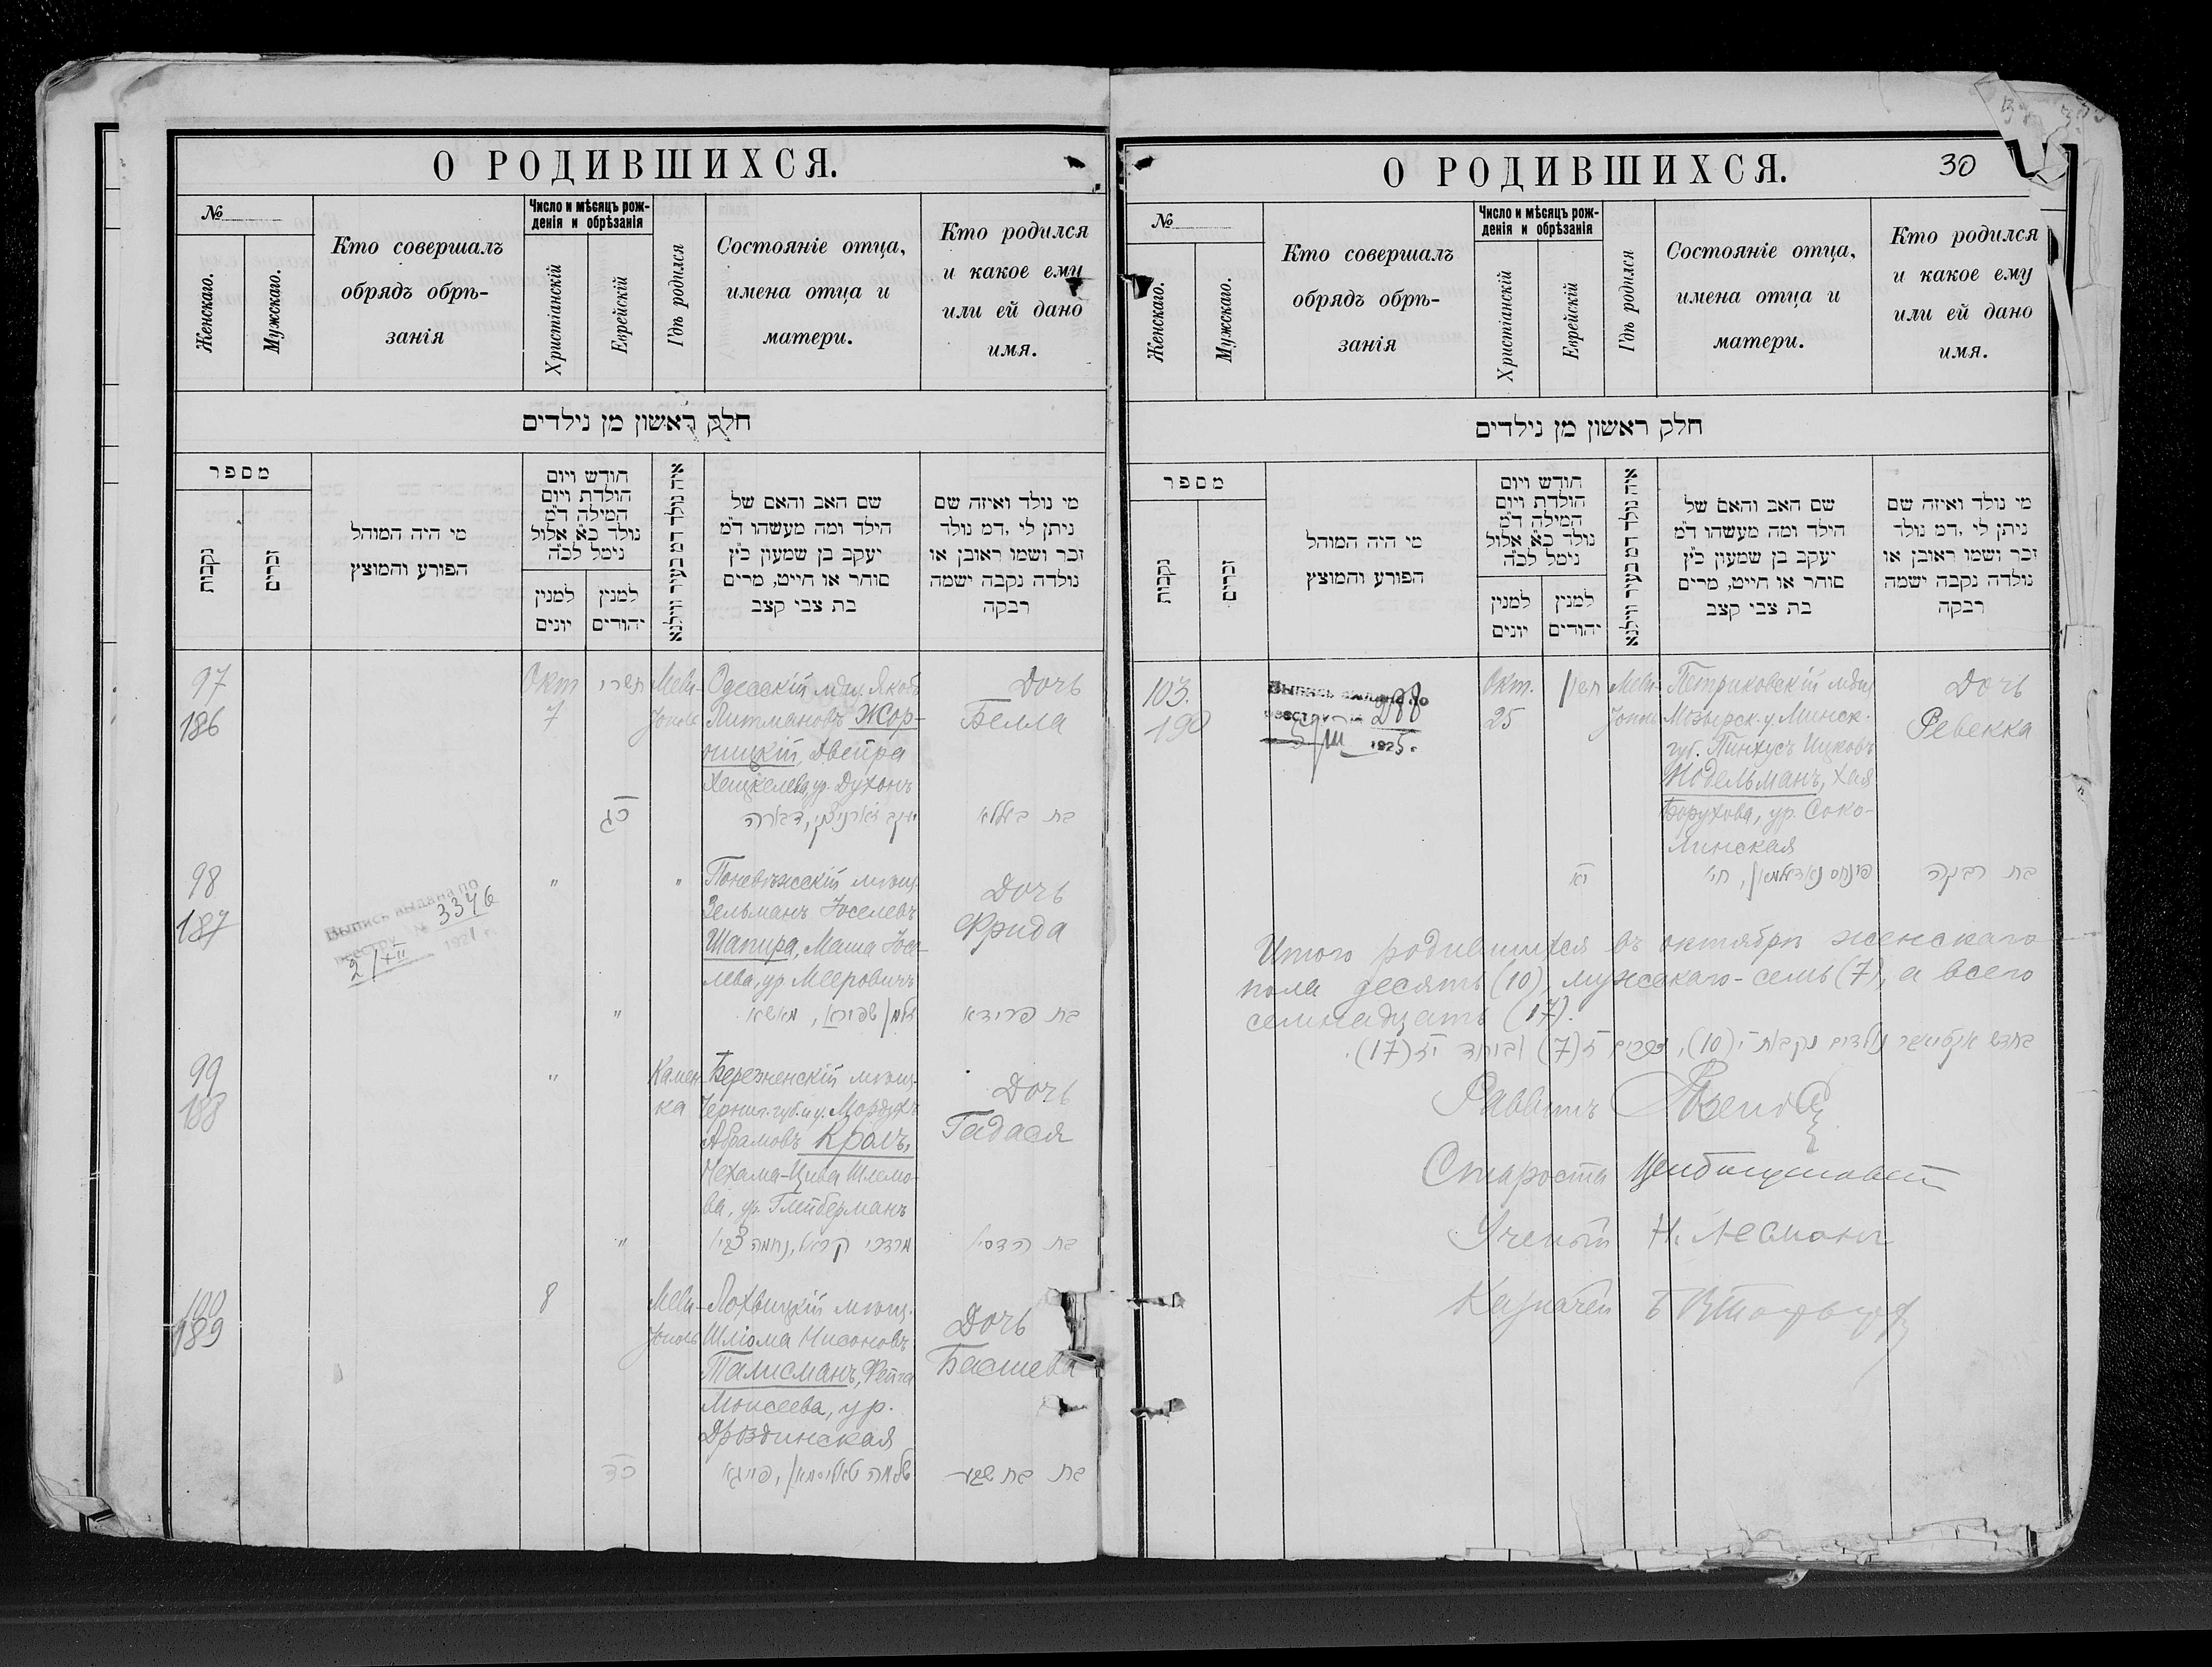 О РОДИВШИХСЯ.
№
Женскаго.
Мужскаго.
Кто совершалъ
обрядъ обрѣ-
занія
Число и мѣсяцъ рож-
денія и обрѣзанія
Христіанскій
Еврейскій
Гдѣ родился
Состояніе отца,
имена отца и
матери.
Кто родился
и какое ему
или ей дано
имя.
חלק ראשון מן נילדים
מספר
נקבות
זכרים
מי היה המוהל
הפורע והמוצץ
חודש ויום
הולדת ויום
המילה ד״מ
נולד כ״א אלול
נימל לכ״ה
למנין
יונים
למנין
יהודים
איה נולד דמ בעיר ווילנא
שם האב והאם של
הילד ומה מעשהו ד״מ
יעקב בן שמעון כ״ץ
סוחר או חייט, מרים
בת צבי קצב
מי נולד ואיזה שם
ניתן לי ,דמ נולד
זכר ושמו ראובן או
נולדה נקבה ישמה
רבקה
97
186
Окт
7
תשרי
כג
Мели-
тополь
Одесскій мѣщ. Якобъ
Литмановъ Жор-
ницкій, Двейра
Хецкелева, ур. Духонъ
Дочь
Белла
בת באללא
98
187
Выпись выдана по
реестру № 3346
2/XII 1921 г.
"
"
"
Поневѣжскій мѣщ.
Зельманъ Іоселевъ
Шапира, Маша Іосе-
лева, ур Мееровичъ
זלמן שפירא, מאשא
Дочь
Фрида
בת פרידא
99
188
"
"
Камен-
ка
Березненскій мѣщ.
Черниг. губ. и у. Мордухъ
Абрамовъ Кролъ,
Нехама-Цива Шлемо-
ва, ур. Глейберманъ
Дочь
Гадася
בת הדסי׳
100
189
8
כד
Мели-
тополь
Лохвицкій мѣщ.
Шліома Нисоновъ
Талисманъ, Фейга
Моисеева, ур.
Дроздинская
שלמה טאליסמאן, פייגא
Дочь
Басшева
בת בת שבע
О РОДИВШИХСЯ.
30
№
Женскаго.
Мужскаго.
Кто совершалъ
обрядъ обрѣ-
занія
Число и мѣсяцъ рож-
денія и обрѣзанія
Христіанскій
Еврейскій
Гдѣ родился
Состояніе отца,
имена отца и
матери.
Кто родился
и какое ему
или ей дано
имя.
חלק ראשון מן נילדים
מספר
נקבות
זכרים
מי היה המוהל
הפורע והמוצץ
חודש ויום
הולדת ויום
המילה ד״מ
נולד כ״א אלול
נימל לכ״ה
למנין
יונים
למנין
יהודים
איה נולד דמ בעיר ווילנא
שם האב והאם של
הילד ומה מעשהו ד״מ
יעקב בן שמעון כ״ץ
סוחר או חייט, מרים
בת צבי קצב
מי נולד ואיזה שם
ניתן לי ,דמ נולד
זכר ושמו ראובן או
נולדה נקבה ישמה
רבקה
103.
190
Выпись выдана по
реестру № 288
5/III 1925 г.
Окт.
25
חשון
יא
Мели-
тополь
Петриковскій мѣщ
Мозырск. у. Минск.
губ. Пинхусъ Ицковъ
Нодельманъ, Хая
Борухова, ур. Соко-
линская
פינחס נאדעלמאן, חי׳
Дочь
Ревекка
בת רבקה
Итого родившихся въ октябрѣ женскаго
пола десять (10), мужскаго - семь (7), а всего
семнадцать (17).
Раввинъ
Староста
Ученый Н. Лесманъ
Казначей